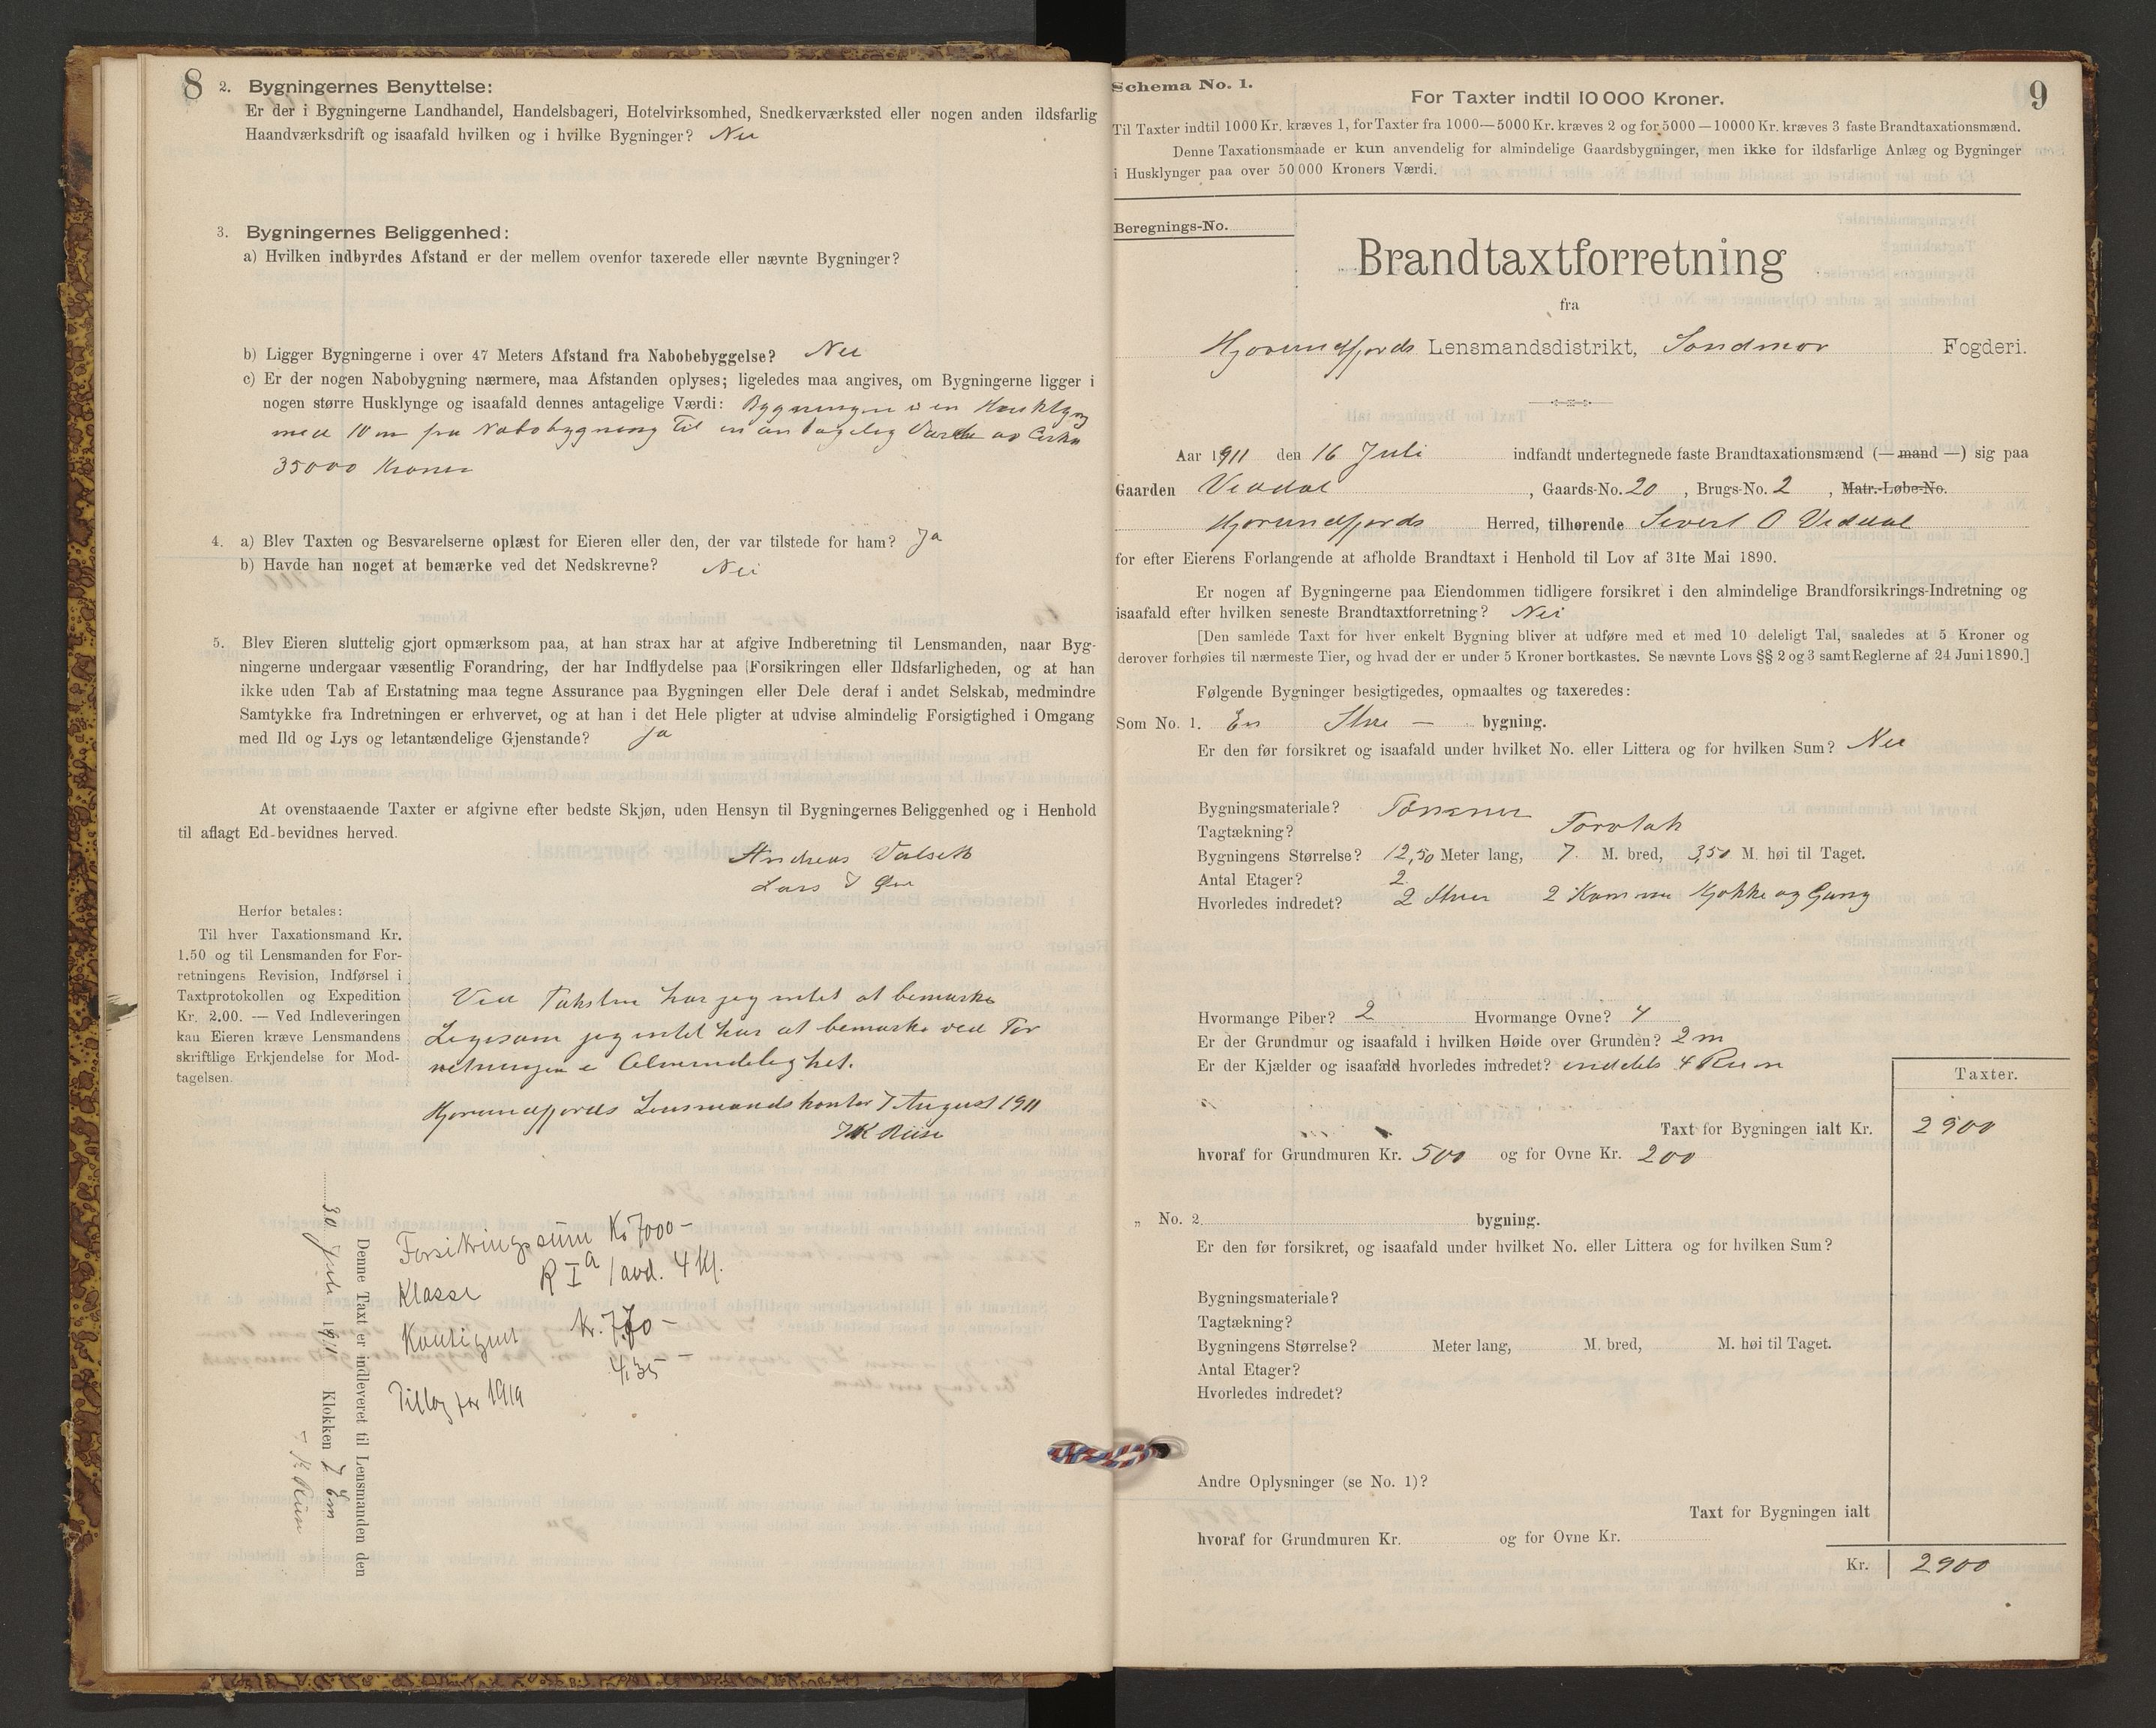 8
2. Bygningernes Benyttelse:
Er der i Bygningerne Landhandel, Handelsbageri, Hotelvirksomhed, Snedkerværksted eller nogen anden ildsfarlig
Haandværksdrift og isaafald hvilken og i hvilke Bygninger? Nei
3. Bygningernes Beliggenhed:
a) Hvilken indbyrdes Afstand er der mellem ovenfor taxerede eller nævnte Bygninger?
b) Ligger Bygningerne i over 47 Meters Afstand fra Nabobebyggelse? Nei
c) Er der nogen Nabobygning nærmere, maa Afstanden oplyses; ligeledes maa angives, om Bygningerne ligger i
nogen større Husklynge og isaafald dennes antagelige Værdi: Bygningen i en Husklyng
med 10 m fra Nabobygning til en antagelig Værdi av Cirka
35000 Kroner
4. a) Blev Taxten og Besvarelserne oplæst for Eieren eller den, der var tilstede for ham? Ja
b) Havde han noget at bemærke ved det Nedskrevne? Nei
5. Blev Eieren sluttelig gjort opmærksom paa, at han strax har at afgive Indberetning til Lensmanden, naar Byg-
ningerne undergaar væsentlig Forandring, der har Indflydelse paa Forsikringen eller Ildsfarligheden, og at han
ikke uden Tab af Erstatning maa tegne Assurance paa Bygningen eller Dele deraf i andet Selskab, medmindre
Samtykke fra Indretningen er erhvervet, og at han i det Hele pligter at udvise almindelig Forsigtighed i Omgang
med Ild og Lys og letantændelige Gjenstande? Ja
At ovenstaaende Taxter er afgivne efter bedste Skjøn, uden Hensyn til Bygningernes Beliggenhed og i Henhold
til aflagt Ed-bevidnes herved.
Andreas Valseth
Lars J Øie
Herfor betales:
Til hver Taxationsmand Kr.
1.50 og til Lensmanden for For-
retningens Revision, Indførsel i
Taxtprotokollen og Expedition
Kr. 2.00. — Ved Indleveringen
kan Eieren kræve Lensmandens
skriftlige Erkjendelse for Mod-
tagelsen.
Ved Taksten har jeg intet at bemærke
Ligesom jeg intet har at bemærke ved For
retningen i Almindelighet.
Hjørundfjords Lensmandskontor 7 August 1911
J K Riise
Denne Taxt er indleveret til Lensmanden den
30 Juli 1911 Klokken 7 Em
J. K. Riise
Forsikringssum Kr 7000 -
Klasse R I a 1 avd. 4 Kl.
Kontigent Kr. 7,70 -
Tillæg for 1919 4,35 -
9
Schema No. 1.
For Taxter indtil 10 000 Kroner.
Til Taxter indtil 1000 Kr. kræves 1, for Taxter fra 1000—5000 Kr. kræves 2 og for 5000—10000 Kr. kræves 3 faste Brandtaxationsmænd.
Denne Taxationsmaade er kun anvendelig for almindelige Gaardsbygninger, men ikke for ildsfarlige Anlæg og Bygninger
i Husklynger paa over 50 000 Kroners Værdi.
Beregnings-No.
Brandtaxtforretning
fra
Hjørundfjords Lensmandsdistrikt, Søndmør Fogderi.
Aar 1911 den 16 Juli indfandt undertegnede faste Brandtaxationsmænd (— mand —) sig paa
Gaarden Viddal, Gaards-No. 20, Brugs-No. 2, Matr.-Løbe-No.
Hjørundfjords Herred, tilhørende Sivert O Viddal
for efter Eierens Forlangende at afholde Brandtaxt i Henhold til Lov af 31te Mai 1890.
Er nogen af Bygningerne paa Eiendommen tidligere forsikret i den almindelige Brandforsikrings-Indretning og
isaafald efter hvilken seneste Brandtaxtforretning? Nei
[Den samlede Taxt for hver enkelt Bygning bliver at udføre med et med 10 deleligt Tal, saaledes at 5 Kroner og
derover forhøies til nærmeste Tier, og hvad der er under 5 Kroner bortkastes. Se nævnte Lovs §§ 2 og 3 samt Reglerne af 24 Juni 1890.]
Følgende Bygninger besigtigedes, opmaaltes og taxeredes:
Som No. 1. En Stue — bygning.
Er den før forsikret og isaafald under hvilket No. eller Littera og for hvilken Sum? Nei
Bygningsmateriale? Tømmer
Tagtækning? Torvtak
Bygningens Størrelse? 12,50 Meter lang, 7 M. bred, 3,50 M. høi til Taget.
Antal Etager? 2
Hvorledes indredet? 2 Stuer 2 Kammer Kjøkke og Gang
Hvormange Piber? 2 Hvormange Ovne? 4
Er der Grundmur og isaafald i hvilken Høide over Grunden? 2 m
Er der Kjælder og isaafald hvorledes indredet? inddelt 4 Rum
Taxter.
Taxt for Bygningen ialt Kr. 2900
hvoraf for Grundmuren Kr. 500 og for Ovne Kr. 200
„ No. 2. bygning.
Er den før forsikret, og isaafald under hvilket No. eller Littera og for hvilken Sum?
Bygningsmateriale?
Tagtækning?
Bygningens Størrelse? Meter lang, M. bred, M. høi til Taget.
Antal Etager?
Hvorledes indredet?
Andre Oplysninger (se No. 1)?
Taxt for Bygningen ialt
hvoraf for Grundmuren Kr. og for Ovne Kr.
Kr. 2900